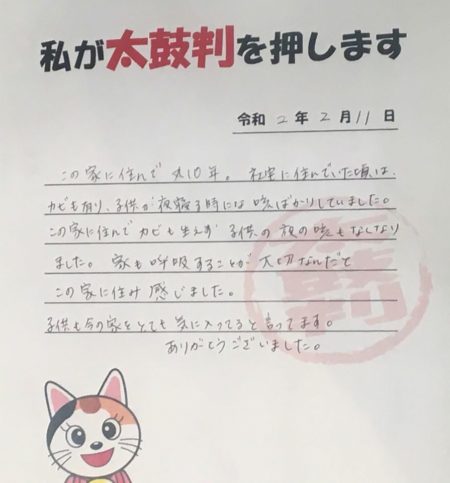 私が太鼓判を押します
令和 2 年 2 月 11 日
この家に住んで 丸10年。 社宅に住んでいた頃は、
カビも有り、子供が夜寝る時には 咳ばかりしていました。
この家に住んで カビも生えず 子供の 夜の咳もなくなり
ました。 家も呼吸することが 大切なんだと
この家に住み 感じました。
子供も今の家をとても 気に入ってると 言ってます。
ありがとうございました。